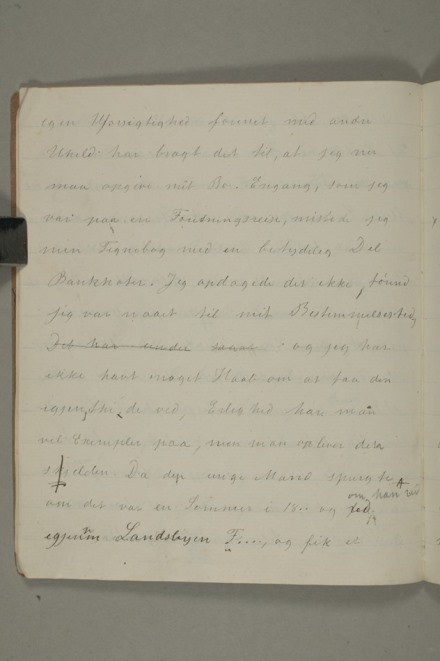 egen Uforsigtighed forenet med andre
Uheld har bragt det til, at jeg nu
maa opgive mit Bo. Engang, som jeg
var paa en Forretningsreise, mistede jeg
min Tegnebog med en betydelig Del
Banknoter. Jeg opdagede det ikke, førend
jeg var naaet til mit Bestemmelsessted,
og jeg har
ikke havt noget Haab om at faa den
igjen, Ærlighed har man
vel Exempler paa, men man oplever dem
sjelden. Da den unge Mand spurgte,
om det var en Sommer i 18.. og om han var
igjennem Landsbyen F...., og fik et